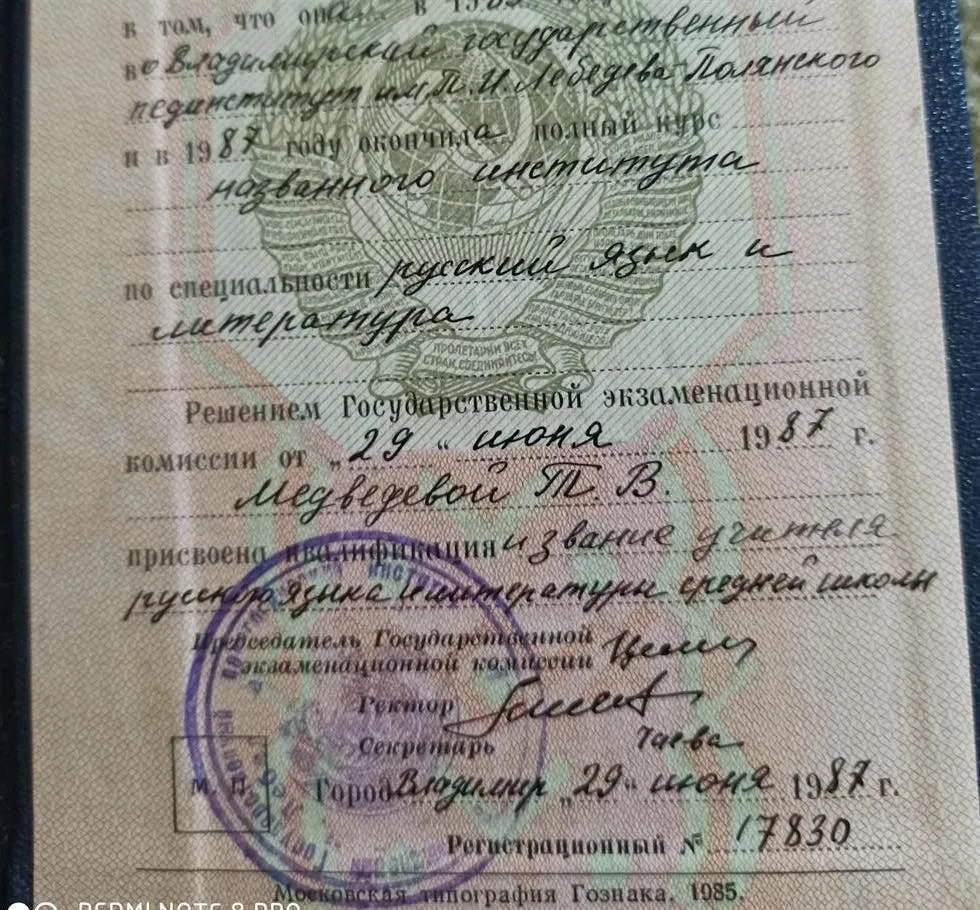 в том, что она в 19
во Владимирский государственный
пединститут им. П. И. Лебедева-Полянского
и в 1987 году окончила полный курс
названного института
по специальности русский язык и
литература
ПРОЛЕТАРИИ ВСЕХ
СТРАН, СОЕДИНЯЙТЕСЬ!
Решением Государственной экзаменационной
комиссии от „29“ июня 1987 г.
Медведевой Т. В.
присвоена квалификация и звание учителя
русского языка и литературы средней школы
Председатель Государственной
экзаменационной комиссии
Ректор
Секретарь
М. П.
Город Владимир „29“ июня 1987 г.
Регистрационный № 17830
Московская типография Гознака. 1985.
REDMI NOTE 8 PRO